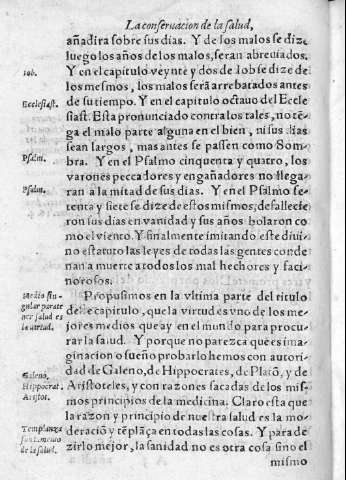 La conseruacion de la salud,
añadira sobre sus dias. Y de los malos se dize
luego los años de los malos, seran abreuiados.
Iob.
Y en el capitulo veynte y dos de Iob se dize de
los mesmos, los malos serã arrebatados antes
Ecclesiast.
de su tiempo. Y en el capitulo octauo del Eccle
siast. Esta pronunciado contra los tales, no tē
ga el malo parte alguna en el bien, ni sus dias
sean largos, mas antes se passen como Som-
Psalm.
bra. Y en el Psalmo cinquenta y quatro, los
varones peccadores y engañadores no llega-
Psalm.
ran a la mitad de sus dias. Y en el Psalmo se-
tenta y siete se dize de estos mismos, desfallecie
ron sus dias en vanidad y sus años bolaron co
mo el viento. Y finalmente imitando este diui-
no estatuto las leyes de todas las gentes conde
nan a muerte a todos los mal hechores y faci-
norosos.
Medio sin-
gular para te
ner salud es
la virtud.
Propusimos en la vltima parte del titulo
deste capitulo, que la virtud es vno de los me-
jores medios que ay en el mundo para procu-
rar la salud. Y porque no parezca que es ima-
ginacion o sueño probarlo hemos con autori-
Galeno,
Hippocrat.
Aristot.
dad de Galeno, de Hippocrates, de Platõ, y de
Aristoteles, y con razones sacadas de los mis-
mos principios de la medicina. Claro esta que
la razon y principio de nuestra salud es la mo-
Templanza
fundamento
de la salud.
deraciõ y tēplãça en todas las cosas. Y para de
zirlo mejor, la sanidad no es otra cosa sino el
mismo